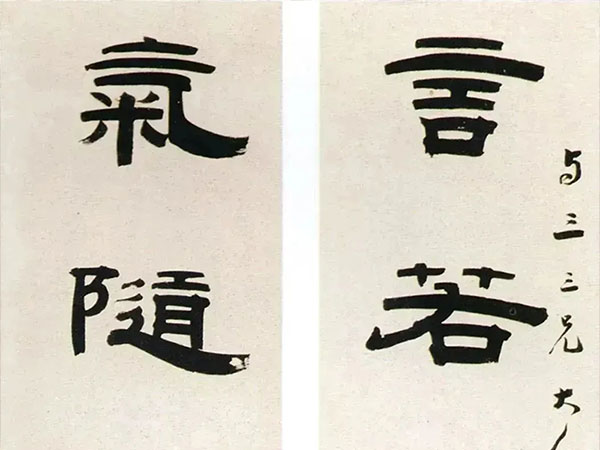 与三三兄大
言若
氣隨